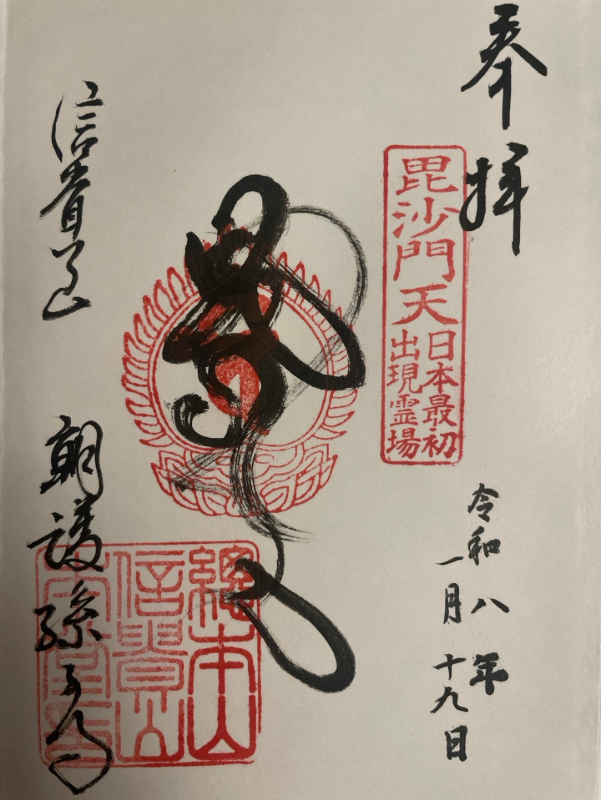 奉拝
毘沙門天
日本最初
出現霊場
令和八年
一月十九日
信貴山
朝護孫子寺
總本山
信貴山